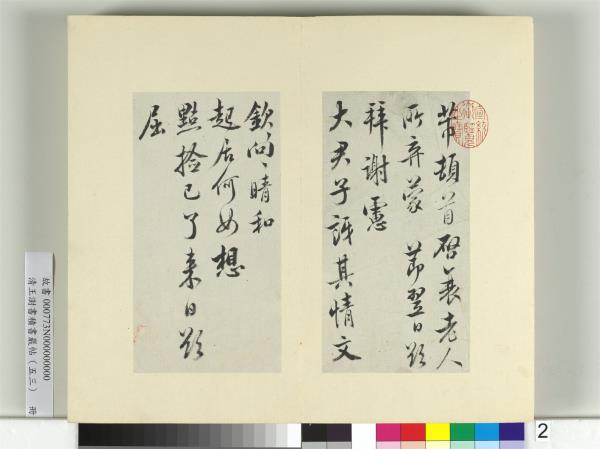 芾頓首啓衰老人
所弃蒙 節翌日欲
拜謝憲
大君子訝其情文
欽向、晴和
起居何如想
點撿已了来日欲
屈
故書 000773N000000000
清王澍書積書巖帖(五三) 冊
2